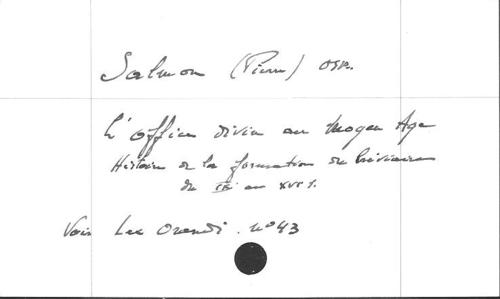 Salmon (Pierre) OSB.
L'office divin au Moyen Age
Histoire de la formation du bréviaire
du IXe au XVIe s.
Voir Lex Orandi. n° 43